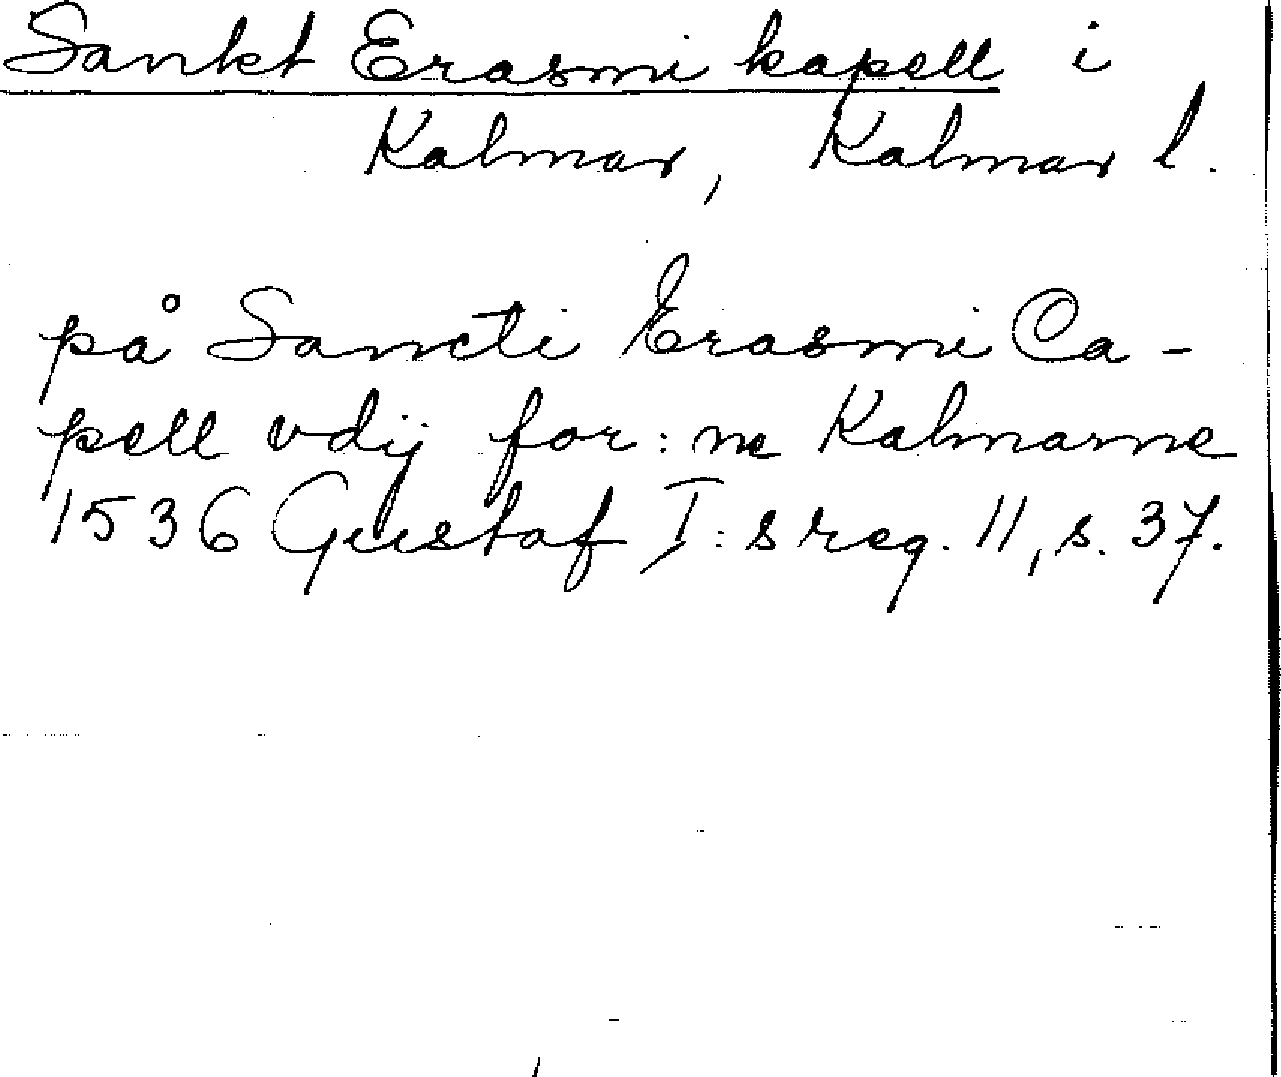 Sankt Erasmi kapell i
Kalmar, Kalmar l.
på Sancti Erasmi Ca-
pell vdij for: ne Kalmarne
1536 Gustaf I:s reg. 11, s. 37.